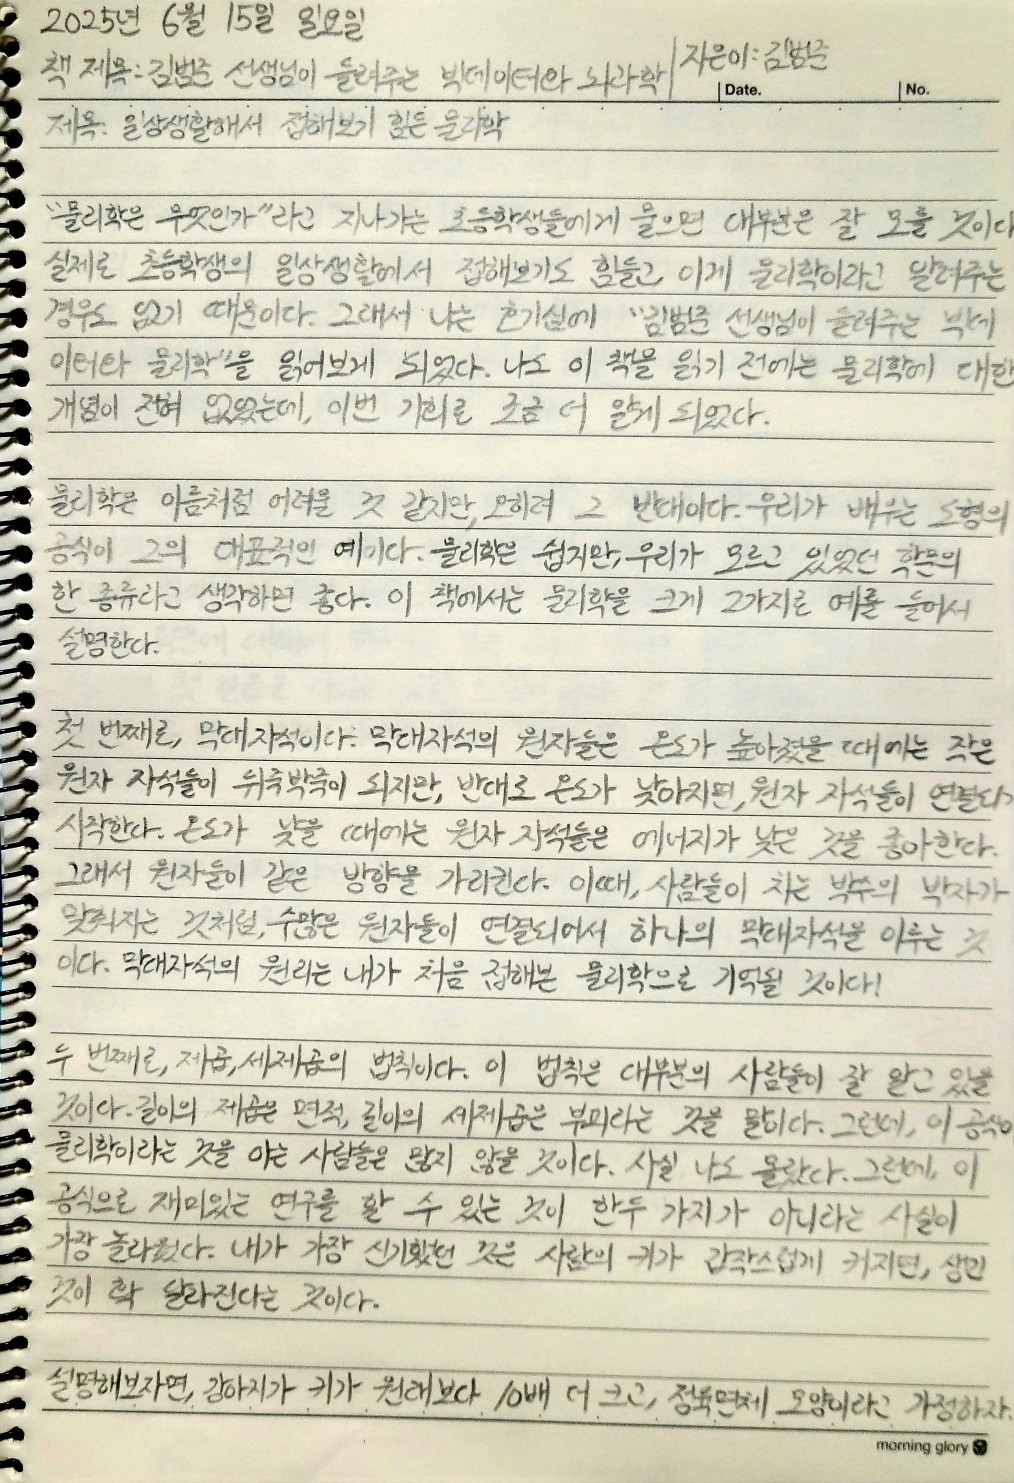 2025년 6월 15일 일요일
책 제목: 김범준 선생님이 들려주는 빅데이터와 뇌과학 | 지은이: 김범준
Date. No.
제목: 일상생활해서 접해보기 힘든 물리학
"물리학은 무엇인가"라고 지나가는 초등학생들에게 물으면 대부분은 잘 모를 것이다
실제로 초등학생의 일상생활에서 접해보기도 힘들고, 이게 물리학이라고 알려주는
경우도 없기 때문이다. 그래서 나는 호기심에 "김범준 선생님이 들려주는 빅데
이터와 물리학"을 읽어보게 되었다. 나도 이 책을 읽기 전에는 물리학에 대한
개념이 전혀 없었는데, 이번 기회로 조금 더 알게 되었다.
물리학은 이름처럼 어려울 것 같지만, 오히려 그 반대이다. 우리가 배우는 도형의
공식이 그의 대표적인 예이다. 물리학은 쉽지만, 우리가 모르고 있었던 학문의
한 종류라고 생각하면 좋다. 이 책에서는 물리학을 크게 2가지로 예를 들어서
설명한다.
첫 번째로, 막대자석이다. 막대자석의 원자들은 온도가 높아졌을 때에는 작은
원자 자석들이 뒤죽박죽이 되지만, 반대로 온도가 낮아지면, 원자 자석들이 연결되기
시작한다. 온도가 낮을 때에는 원자 자석들은 에너지가 낮은 것을 좋아한다.
그래서 원자들이 같은 방향을 가리킨다. 이때, 사람들이 치는 박수의 박자가
맞춰지는 것처럼, 수많은 원자들이 연결되어서 하나의 막대자석을 이루는 것
이다. 막대자석의 원리는 내가 처음 접해본 물리학으로 기억될 것이다!
두 번째로, 제곱, 세제곱의 법칙이다. 이 법칙은 대부분의 사람들이 잘 알고 있을
것이다. 길이의 제곱은 면적, 길이의 세제곱은 부피라는 것을 말이다. 그런데, 이 공식이
물리학이라는 것을 아는 사람들은 많지 않을 것이다. 사실 나도 몰랐다. 그런데, 이
공식으로 재미있는 연구를 할 수 있는 것이 한두 가지가 아니라는 사실이
가장 놀라웠다. 내가 가장 신기했던 것은 사람의 키가 갑작스럽게 커지면, 상민
것이 확 달라진다는 것이다.
설명해보자면, 강아지가 키가 원래보다 10배 더 크고, 정육면체 모양이라고 가정하자.
morning glory